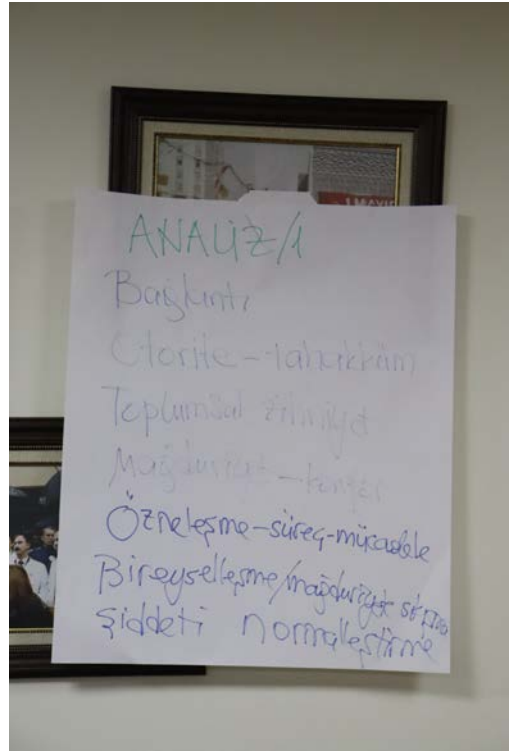 1 MAYIS
ANALİZ/1
Bağlantı
Otorite - tahakküm
Toplumsal zihniyet
Mağduriyet - konfor
Özneleşme-süreç-mücadele
Bireyselleşme/mağduriyete
şiddeti normalleştirme